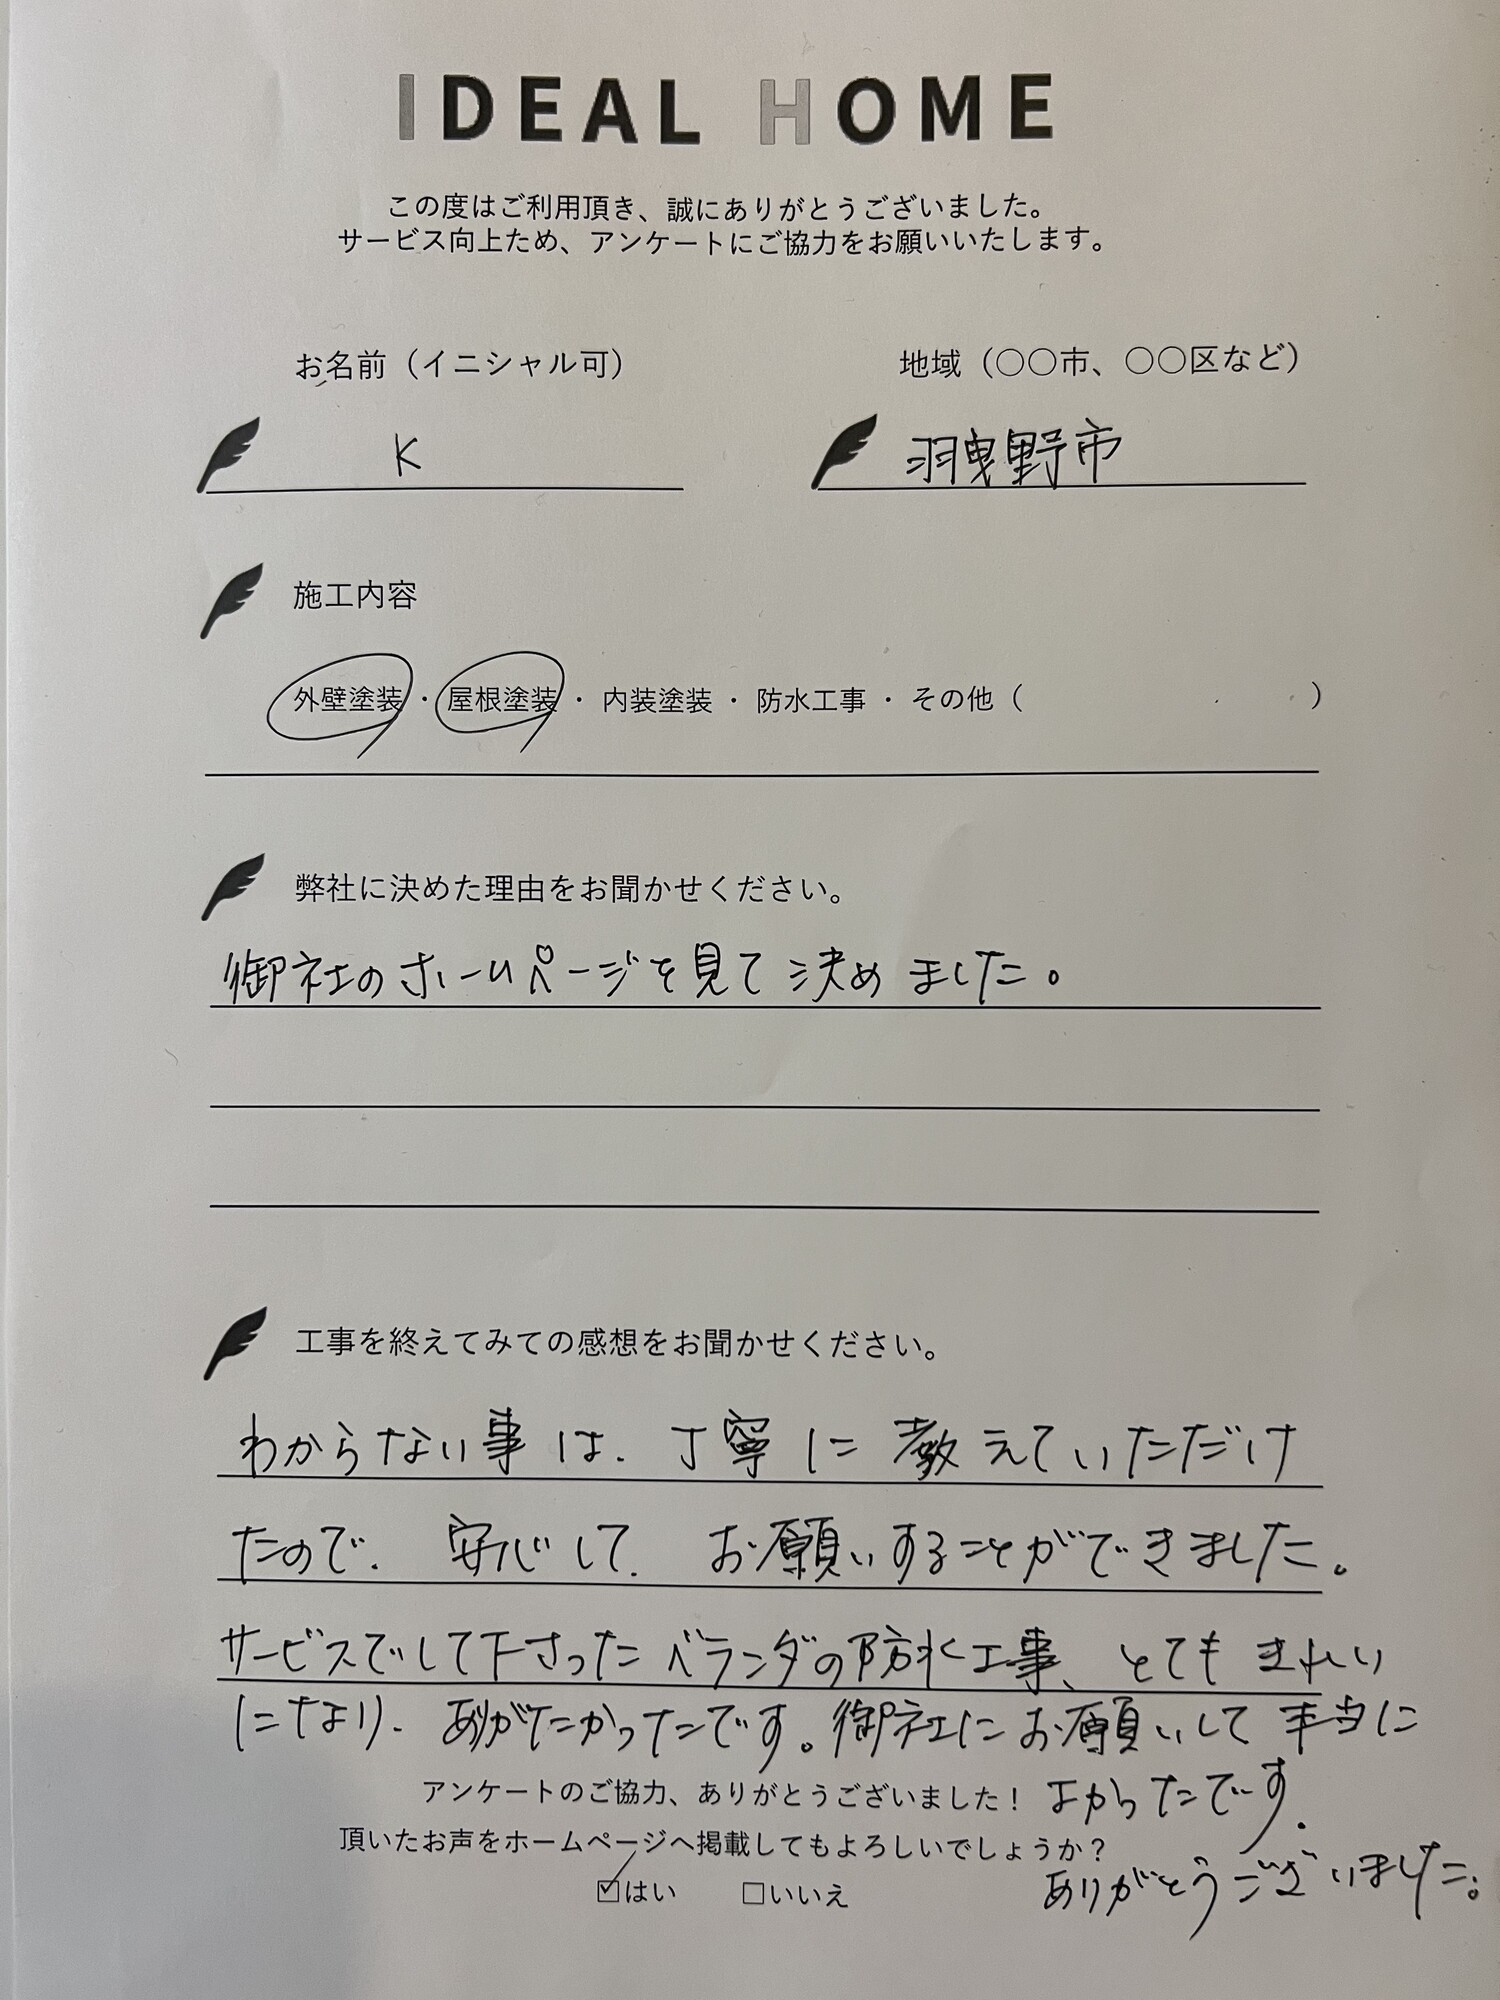 IDEAL HOME
この度はご利用頂き、誠にありがとうございました。
サービス向上ため、アンケートにご協力をお願いいたします。
お名前（イニシャル可）
地域（○○市、○○区など）
K
羽曳野市
施工内容
外壁塗装・屋根塗装・内装塗装・防水工事・その他（　　　）
弊社に決めた理由をお聞かせください。
御社のホームページを見て決めました。
工事を終えてみての感想をお聞かせください。
わからない事は、丁寧に教えていただけ
たので、安心して、お願いすることができました。
サービスでして下さったベランダの防水工事、とてもきれい
になり、ありがたかったです。御社にお願いして本当に
よかったです。
アンケートのご協力、ありがとうございました！
頂いたお声をホームページへ掲載してもよろしいでしょうか？
☑はい　□いいえ
ありがとうございました。